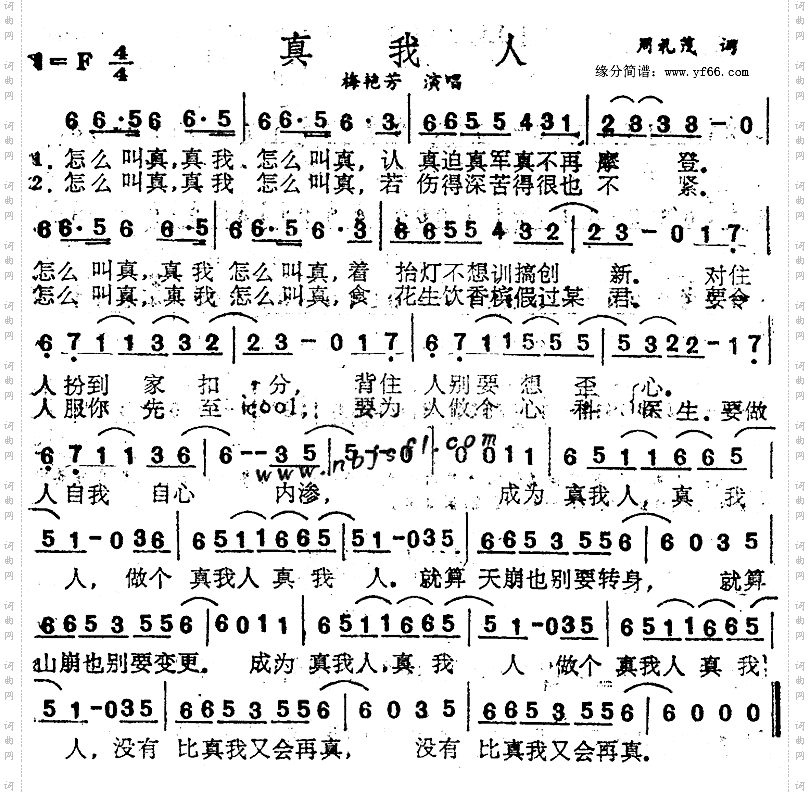 真我人
1=F 4/4
周礼茂 词
缘分简谱：www.yf66.com
梅艳芳 演唱
66·56 6·5|66·56·3|6655431|23838-0
1.怎么叫真,真我、怎么叫真,认 真迫真军真不再摩 登.
2.怎么叫真,真我 怎么叫真,若 伤得深苦得很也不 紧.
66·56 6·5|66·56·3|66554 32|23-017
怎么叫真,真我 怎么叫真,着 抬灯不想训搞创 新. 对住
怎么叫真,真我怎么叫真,食 花生饮香槟假过某 君. 要令
67 11 33 2|23-017|67 11 55 5|5322-17
人扮到 家 扣 分, 背住 人别要 想 歪 心.
人服你 先 至 cool, 要为 人做个 心 科 医 生.要做
67 11 36|6--35|5--0|0011|651166 5
www.nbjsfl.com
人自我 自心 内渗, 成为 真我人,真 我
51-036|6511665|51-035|6653556|6035
人, 做个 真我人真 我 人.就算 天崩也别要转身, 就算
6653556|6011|6511665|51-035|6511665
山崩也别要变更. 成为 真我人,真 我 人 做个 真我人真我
51-035|6653556|6035|6653556|6000
人,没有 比真我又会再真, 没有 比真我又会再真.
词曲网